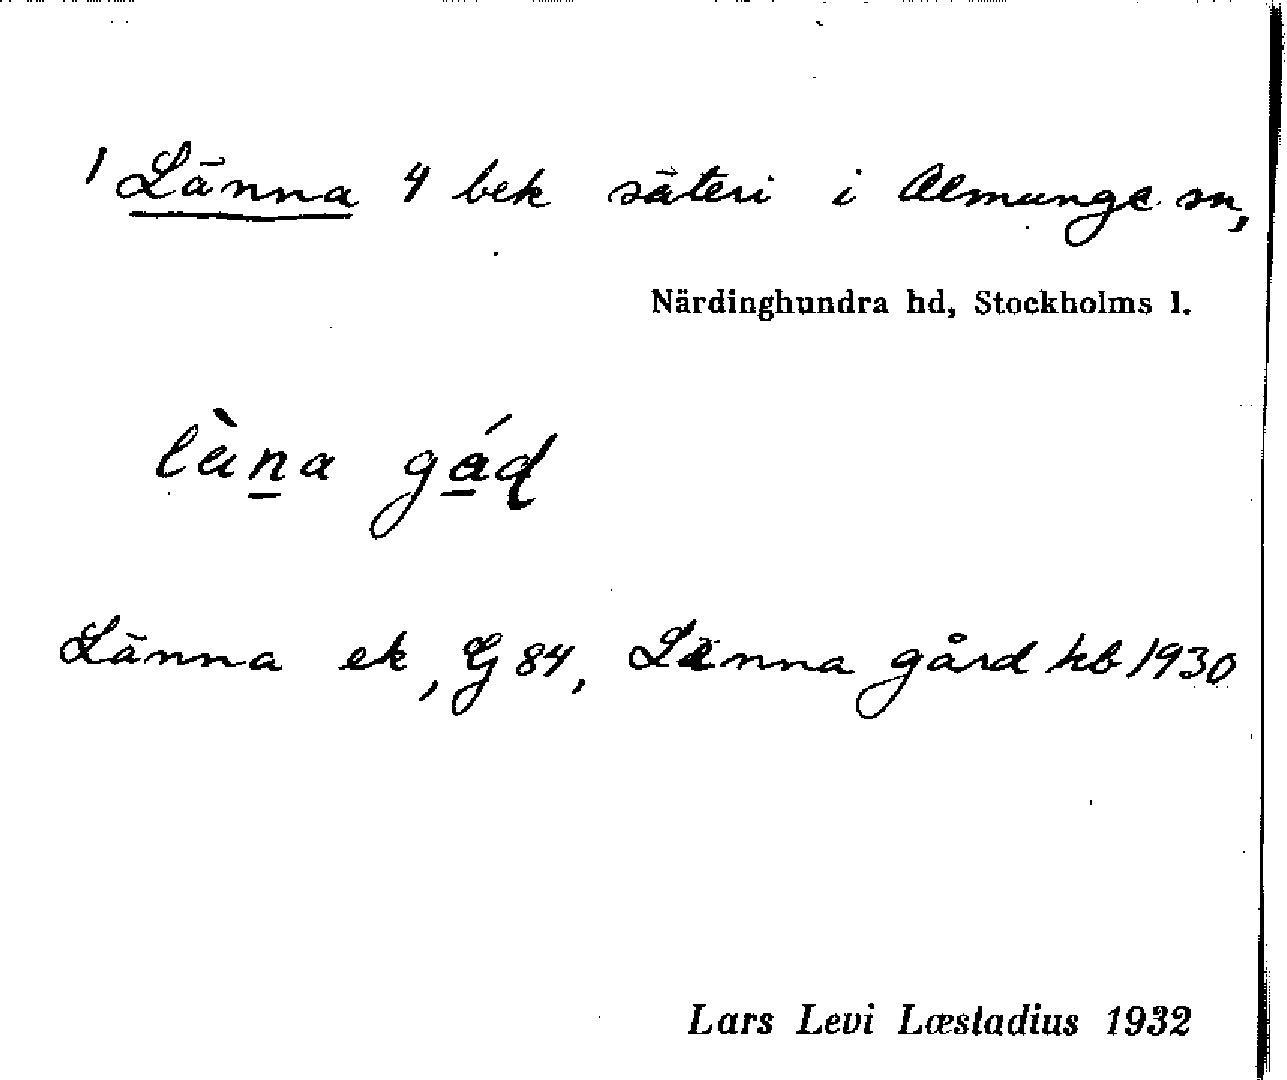 1 Länna 4 bek säteri i Almunge sn,
Närdinghundra hd, Stockholms l.
lὰṉa gá̱ɖ
Länna ek, G 84, Länna gård kb 1930
Lars Levi Læstadius 1932